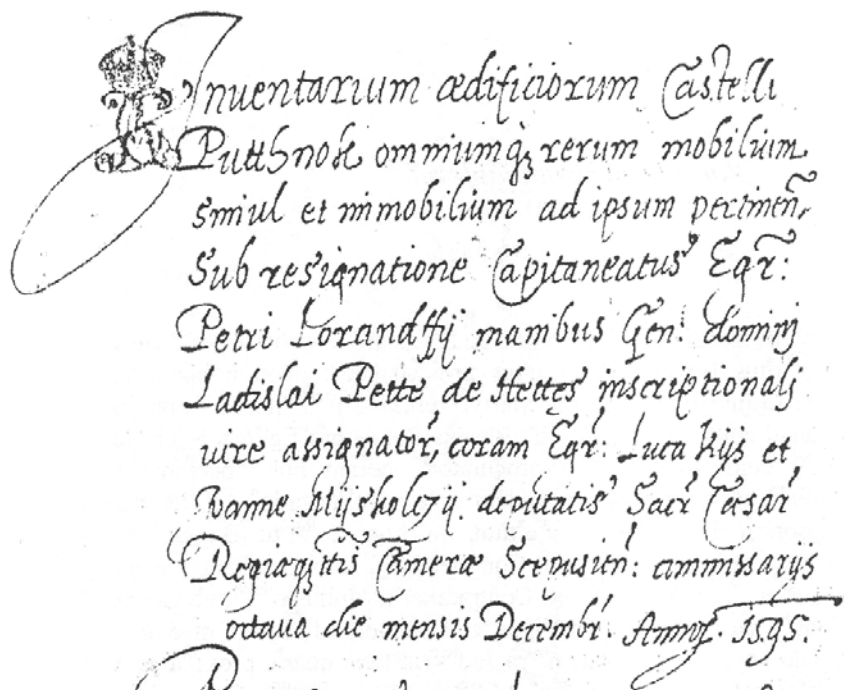 Inuentarium ædificiorum Castelli
Putthnok omniumq₃ rerum mobilium
Simul et immobilium ad ipsum pertineñ,
Sub resignatione Capitaneatus Egr̃:
Petri Lorandffÿ manibus Gen: dominj
Ladislai Pette de Hettes inscriptionalj
iure assignator̃, coram Egr̃: Luca Kijs et
Ioanne Mijskolczij deputatis Sacr̃ Cesar̃
Regiæq₃ Mtis Cameræ Scepusien̄: commissarijs
octaua die mensis Decembr̃. Anno 1595.